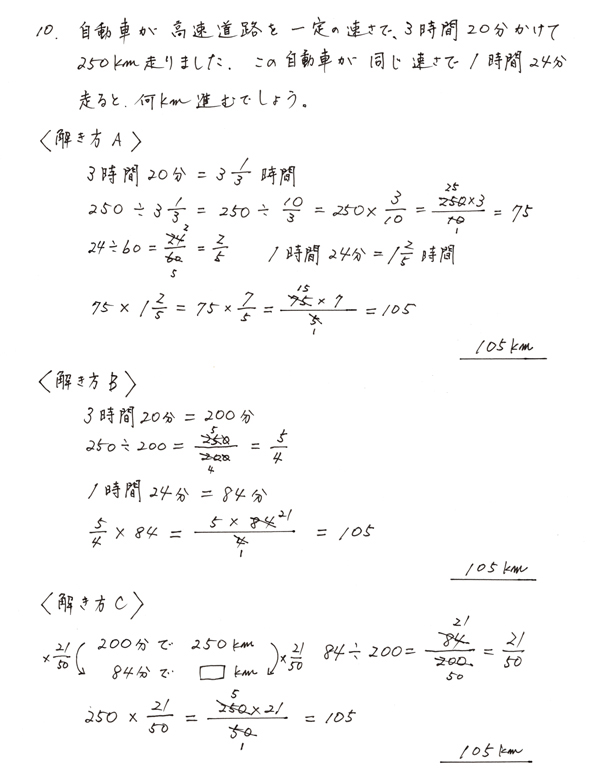 10. 自動車が高速道路を一定の速さで、3時間20分かけて
250km走りました。この自動車が同じ速さで1時間24分
走ると、何km進むでしょう。
〈解き方A〉
3時間20分 = 3 1/3 時間
250 ÷ 3 1/3 = 250 ÷ 10/3 = 250 × 3/10 = 250×3/10 = 75
25
1
24÷60 = 24/60 = 2/5 1時間24分 = 1 2/5 時間
2
5
75 × 1 2/5 = 75 × 7/5 = 75×7/5 = 105
15
1
105km
〈解き方B〉
3時間20分 = 200分
250÷200 = 250/200 = 5/4
5
4
1時間24分 = 84分
5/4 × 84 = 5×84/4 = 105
21
1
105km
〈解き方C〉
×21/50 200分で 250km ×21/50 84÷200 = 84/200 = 21/50
21
50
84分で □ km
250 × 21/50 = 250×21/50 = 105
5
1
105km